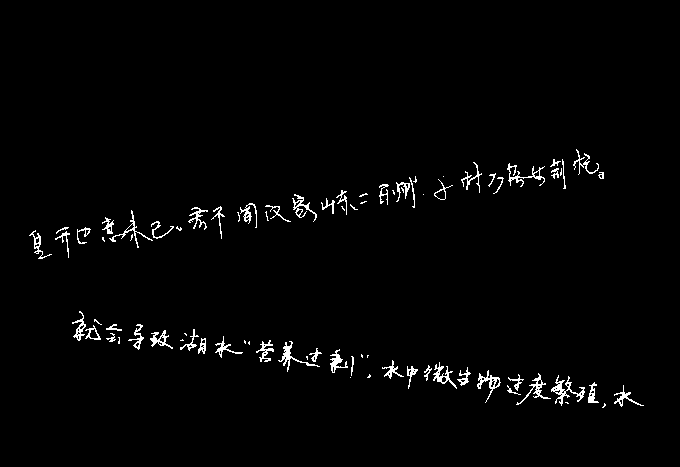 皇开边意未已。君不闻汉家山东二百州，千村万落生荆杞。
就会导致湖水“营养过剩”，水中微生物过度繁殖，水